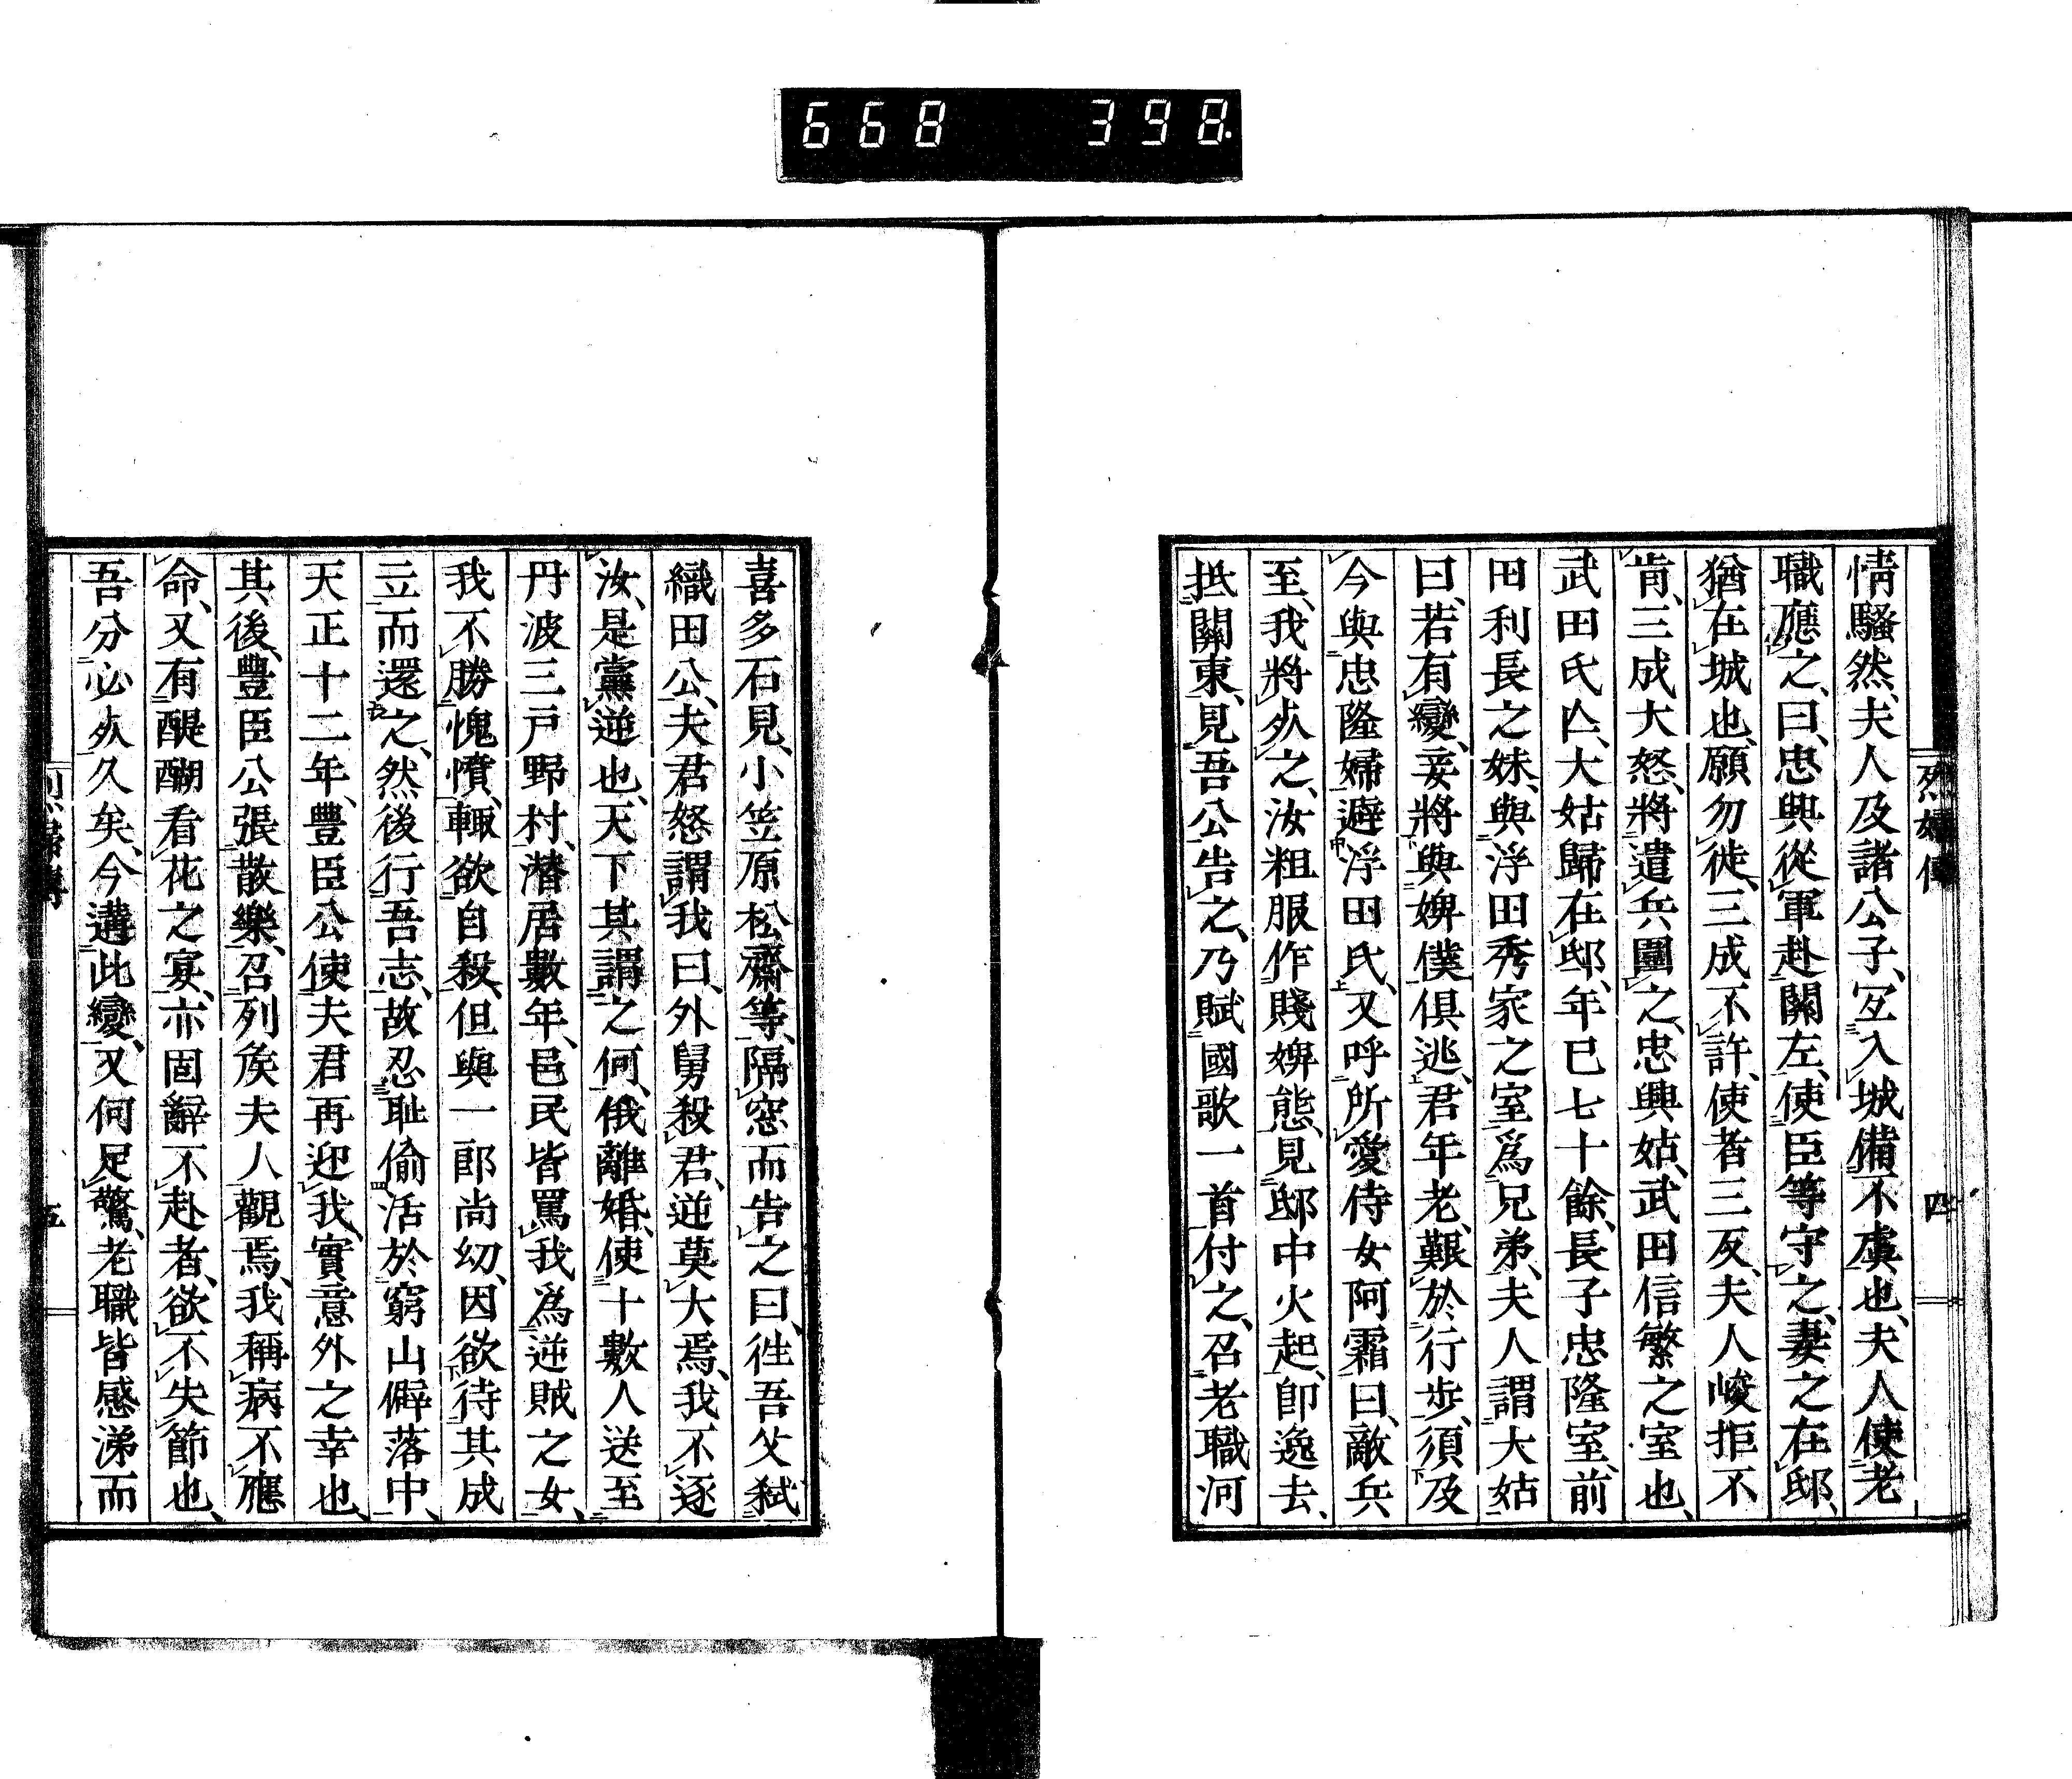 668 398
烈婦傳 四
情騷然、夫人及諸公子、宜入城備不虞也、夫人使老
職應之、曰、忠興從軍赴關左、使臣等守之、妻之在邸、
猶在城也、願勿徙、三成不許、使者三反、夫人峻拒不
肯、三成大怒、將遣兵圍之、忠興姑、武田信繁之室也、
武田氏亾、大姑歸在邸、年已七十餘、長子忠隆室、前
田利長之妹、與浮田秀家之室爲兄弟、夫人謂大姑
曰、若有變、妾將與婢僕俱逃、君年老、艱於行步、須及
今與忠隆婦避浮田氏、又呼所愛侍女阿霜曰、敵兵
至、我將死之、汝粗服作賤婢態、見邸中火起、卽逸去、
抵關東、見吾公告之、乃賦國歌一首付之、召老職河
喜多石見、小笠原松齋等、隔窓而告之曰、往吾父弑
織田公、夫君怒謂我曰、外舅殺君、逆莫大焉、我不逐
汝、是黨逆也、天下其謂之何、俄離婚、使十數人送至
丹波三戸野村、潛居數年、邑民皆罵我爲逆賊之女、
我不勝愧憤、輙欲自殺、但與一郎尚幼、因欲待其成
立而還之、然後行吾志、故忍耻偷活於窮山僻落中、
天正十二年、豐臣公使夫君再迎我、實意外之幸也、
其後、豐臣公張散樂、召列矦夫人觀焉、我稱病不應
命、又有醍醐看花之宴、亦固辭不赴者、欲不失節也、
吾分必死久矣、今遘此變、又何足驚、老職皆感涕而
烈婦傳 五